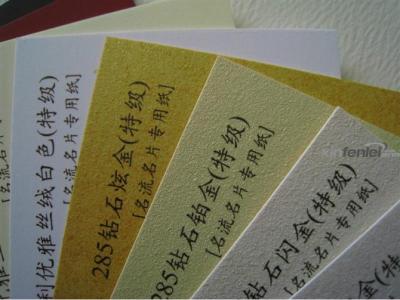 利优雅丝绒白色(特级)
[名流名片专用纸]
285钻石炫金(特级)
[名流名片专用纸]
285钻石铂金(特级)
[名流名片专用纸]
钻石闪金(特级)
[名流名片专用纸]
fenlei